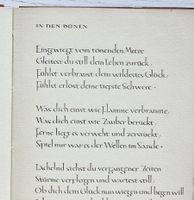 IN DEN DÜNEN
Eingewiegt vom tönenden Meere
Gleitest du still dem Leben zurück,
Fühlst verbraust dein wildestes Glück,
Fühlst erlöst deine tiefste Schwere.
Was dich einst wie Flamme verbrannte,
Was dich einst wie Zauber berückt,
Ferne liegt es verweht und zerstückt,
Spiel nur war es der Wellen im Sande.
Lächelnd siehst du vergangener Zeiten
Stürme verflogen und wartest still,
Ob dich dein Glück nun wiegen und liegen will